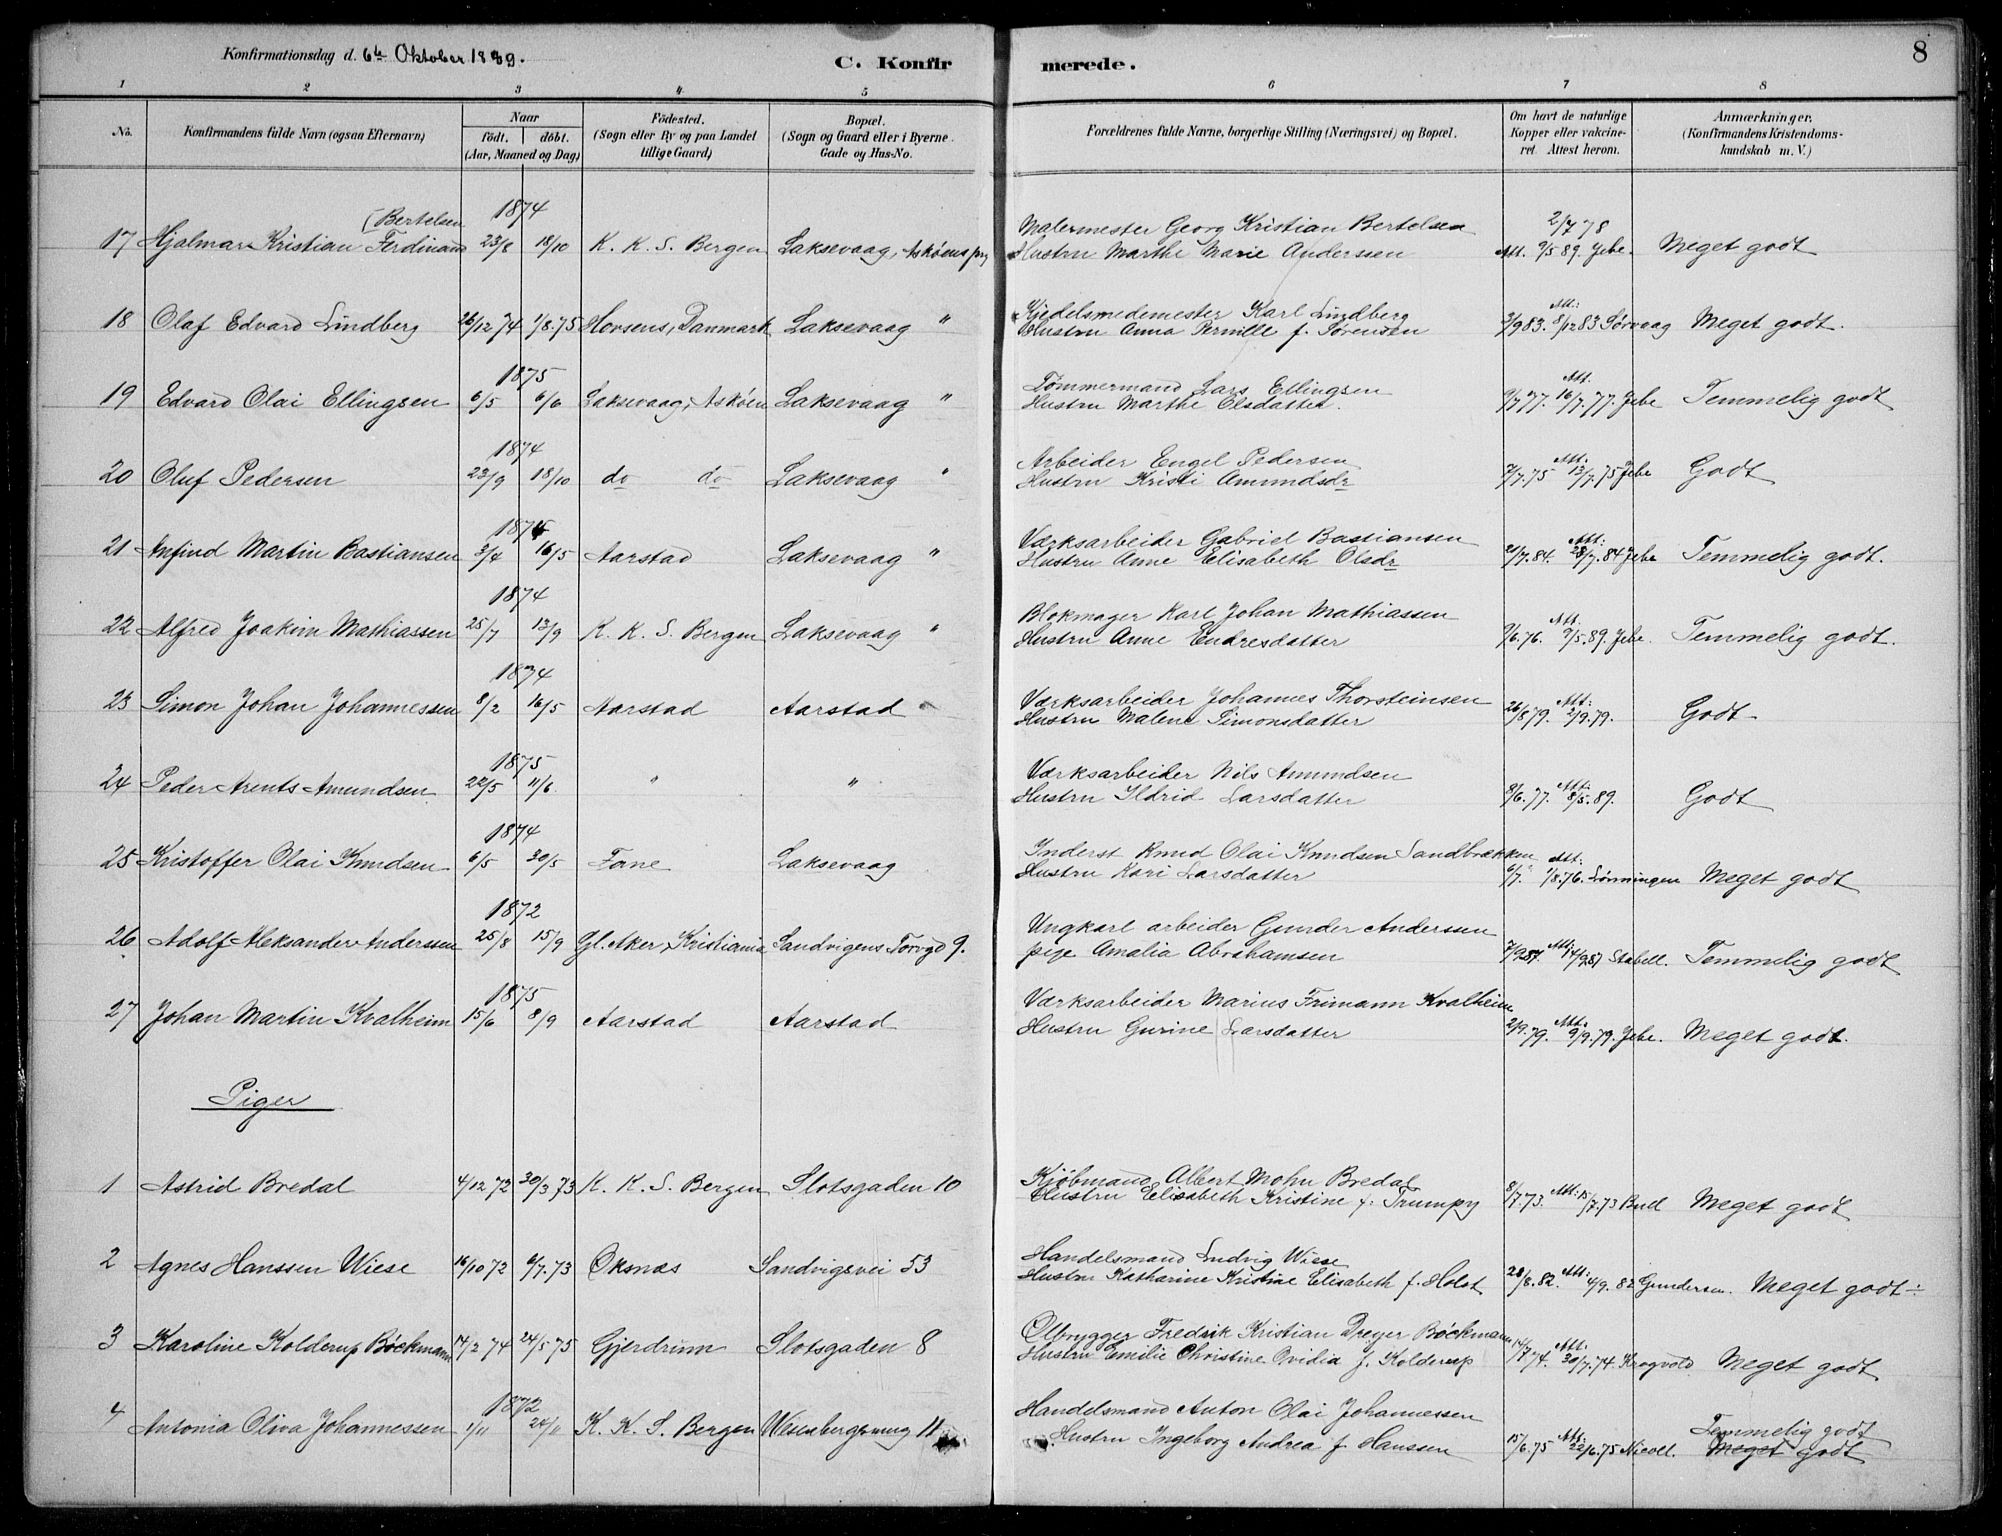 Konfirmationsdag d. 6te Oktober 1889.
C. Konfirmerede.
8
1 2 3 4 5 6 7 8
No. Konfirmandens fulde Navn (ogsaa Efternavn) Naar födt. döbt. (Aar, Maaned og Dag) Födested. (Sogn eller By og paa Landet tillige Gaard) Bopæl. (Sogn og Gaard eller i Byerne Gade og Hus-No. Forældrenes fulde Navne, borgerlige Stilling (Næringsvei) og Bopæl. Om havt de naturlige Kopper eller vakcineret. Attest herom. Anmærkninger. (Konfirmandens Kristendomskundskab m. V.)
(Bertelsen 1874 Malermester Georg Kristian Bertelsen 2/7 78
17 Hjalmar Kristian Ferdinand 23/8 18/10 K. K. S. Bergen Laksevaag, Askøens prg Hustru Marthe Marie Anderssen Att. 9/5 89. Jebe. Meget godt
Kjedelsmedemester Karl Lindberg Att:
18 Olaf Edvard Lindberg 26/12 74 1/8.75 Horsens, Danmark Laksevaag " Hustru Anna Pernille f. Sørensen 3/9 83. 8/12 83 Sørvaag Meget godt.
1875 Tømmermand Lars Ellingsen Att.
19 Edvard Olai Ellingsen 6/5 6/6 Laksevaag, Askøen Laksevaag " Hustru Marthe Olsdatter. 9/7 77. 16/7. 77. Jebe Temmelig godt
1874 Arbeider Engel Pedersen Att:
20 Oluf Pedersen 23/9 18/10 do do Laksevaag " Hustru Kristi Amundsdr 7/7.75 13/7.75 Jebe Godt
Værksarbeider Gabriel Bastiansen Att:
21 Anfind Martin Bastiansen 3/4 16/5 Aarstad Laksevaag " Hustru Anne Elisabeth Olsdr 21/7.84. 28/7.84 Jebe Temmelig godt.
1874 Blokmager Karl Johan Mathiassen Att.
22 Alfred Joakim Mathiassen 25/7 13/9 K. K. S. Bergen Laksevaag " Hustru Anne Endresdatter 9/6.76. 9/5.89. Jebe. Temmelig godt.
1874 Værksarbeider Johannes Thorsteinsen Att:
23 Simon Johan Johannessen 8/2 16/5 Aarstad Aarstad Hustru Malene Simonsdatter 26/8 79. 2/9.79. Godt.
1875 Værksarbeider Nils Amundsen Att:
24 Peder Arents Amundsen 22/5 11/6 " " Hustru Ildrid Larsdatter 8/6.77. 8/5.89. Godt
1874 Inderst Knud Olai Knudsen Sandbrækken Att:
25 Kristoffer Olai Knudsen 6/5 30/5 Fane Laksevaag Hustru Kari Larsdatter 6/7. 1/8.76. Lønningen Meget godt
1872 Ungkarl arbeider Gunder Andersen
26 Adolf Aleksander Anderssen 25/8 15/9 Gl. Aker, Kristiania Sandvigens Torvgd 9. pige Amalia Abrahamsen 7/9 87. Att: 14/9 87 Stabell. Temmelig godt
1875 Værksarbeider Marius Frimann Kvalheim
27 Johan Martin Kvalheim 15/6 8/9 Aarstad Aarstad Hustru Gurine Larsdatter 2/9.79. Att: 9/9.79. Jebe. Meget godt.
Piger
Kjøbmand Albert Mohn Bredal
1 Astrid Bredal 4/12 72 30/3 73 K. K. S. Bergen Slotsgaden 10 Hustru Elisabeth Kristine f. Trumpy 8/7.73. Att: 15/7.73 Bull Meget godt
Handelsmand Ludvig Wiese
2 Agnes Hanssen Wiese 16/10 72 6/7.73 Øksnæs Sandvigsvei 53 Hustru Katharine Kristine Elisabeth f. Holst 28/8.82. Att: 4/9.82 Gundersen. Meget godt ÷
Ølbrygger Fredrik Kristian Dreyer Bøckmann Att:
3 Karoline Kolderup Bøckmann 14/2 74 24/5 75 Gjerdrum Slotsgaden 8 Hustru Emilie Christine Ovidia f. Kolderup 14/7 74. 30/7.74. Krogvold Meget godt
1872 Handelsmand Anton Olai Johannessen Temmelig godt
4 Antonia Oliva Johannessen 1/11 24/11 K. K. S. Bergen Wesenbergsmug 11 Hustru Ingeborg Andrea f Hanssen 15/6.75 Att: 22/6.75 Nicoll. Meget godt